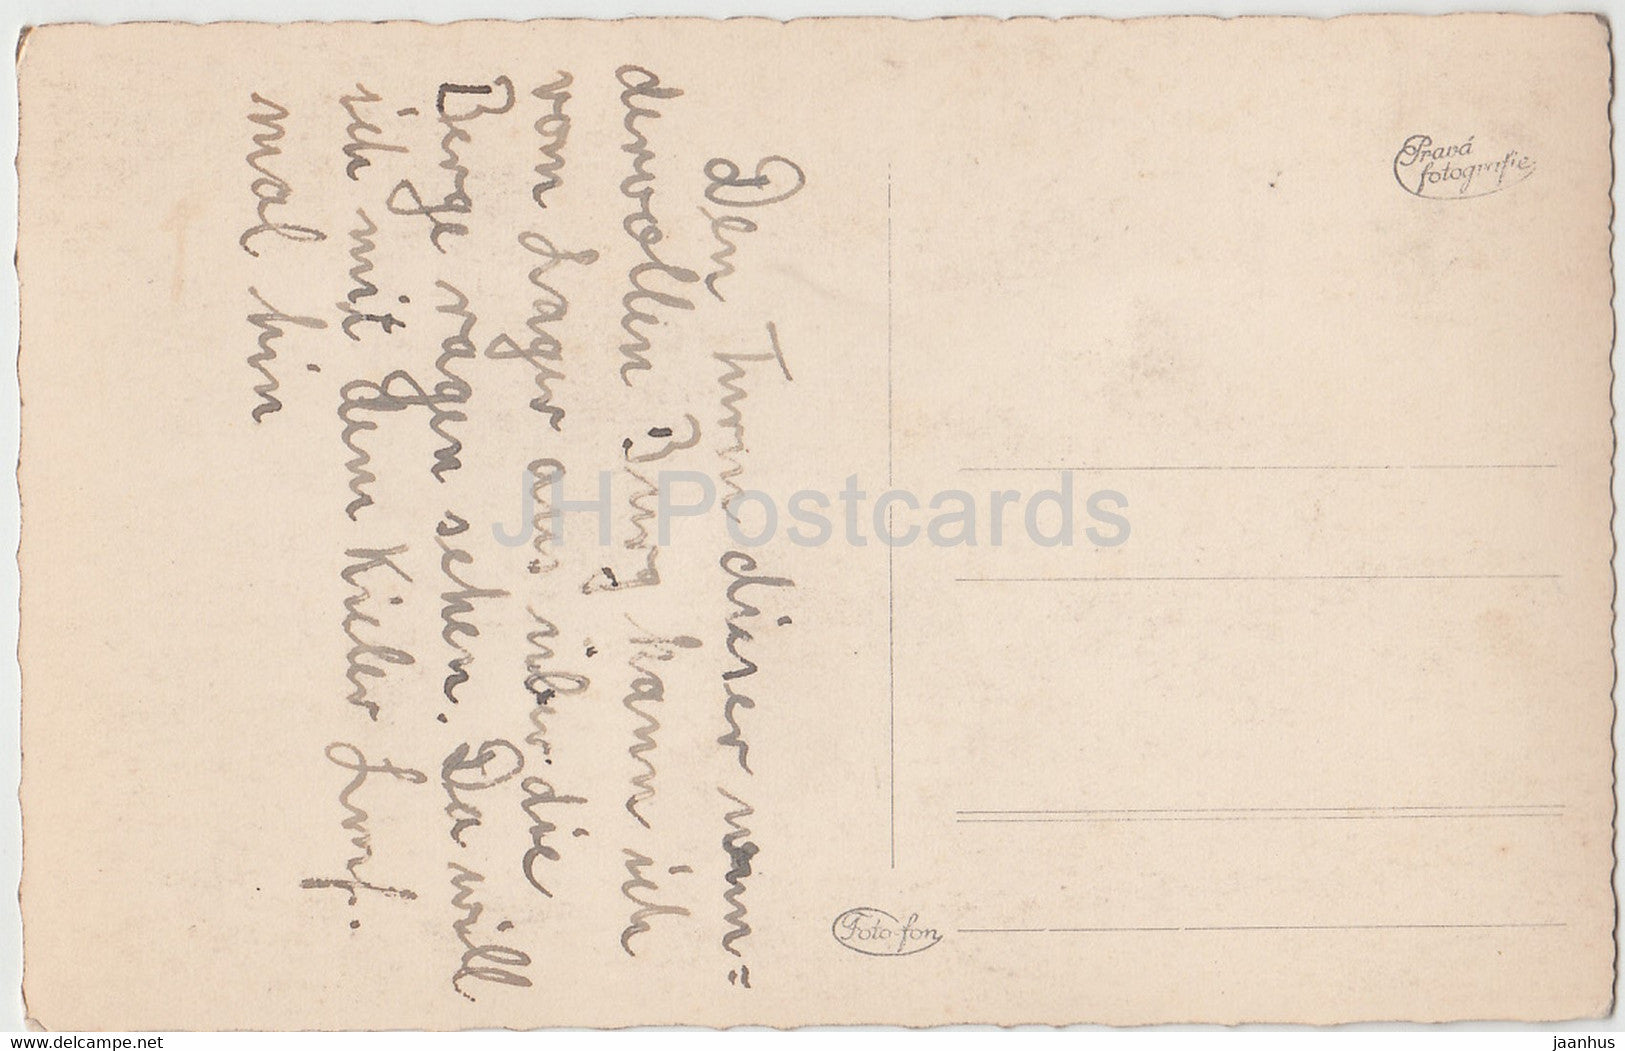 Den Turm dieser wun=
dervollen Burg kann ich
vom Lager aus über die
Berge ragen sehen. Da will
ich mit dem Kieler
mal hin
Pravá
fotografie
Foto-fon
JH Postcards
www.delcampe.net
jaanhus